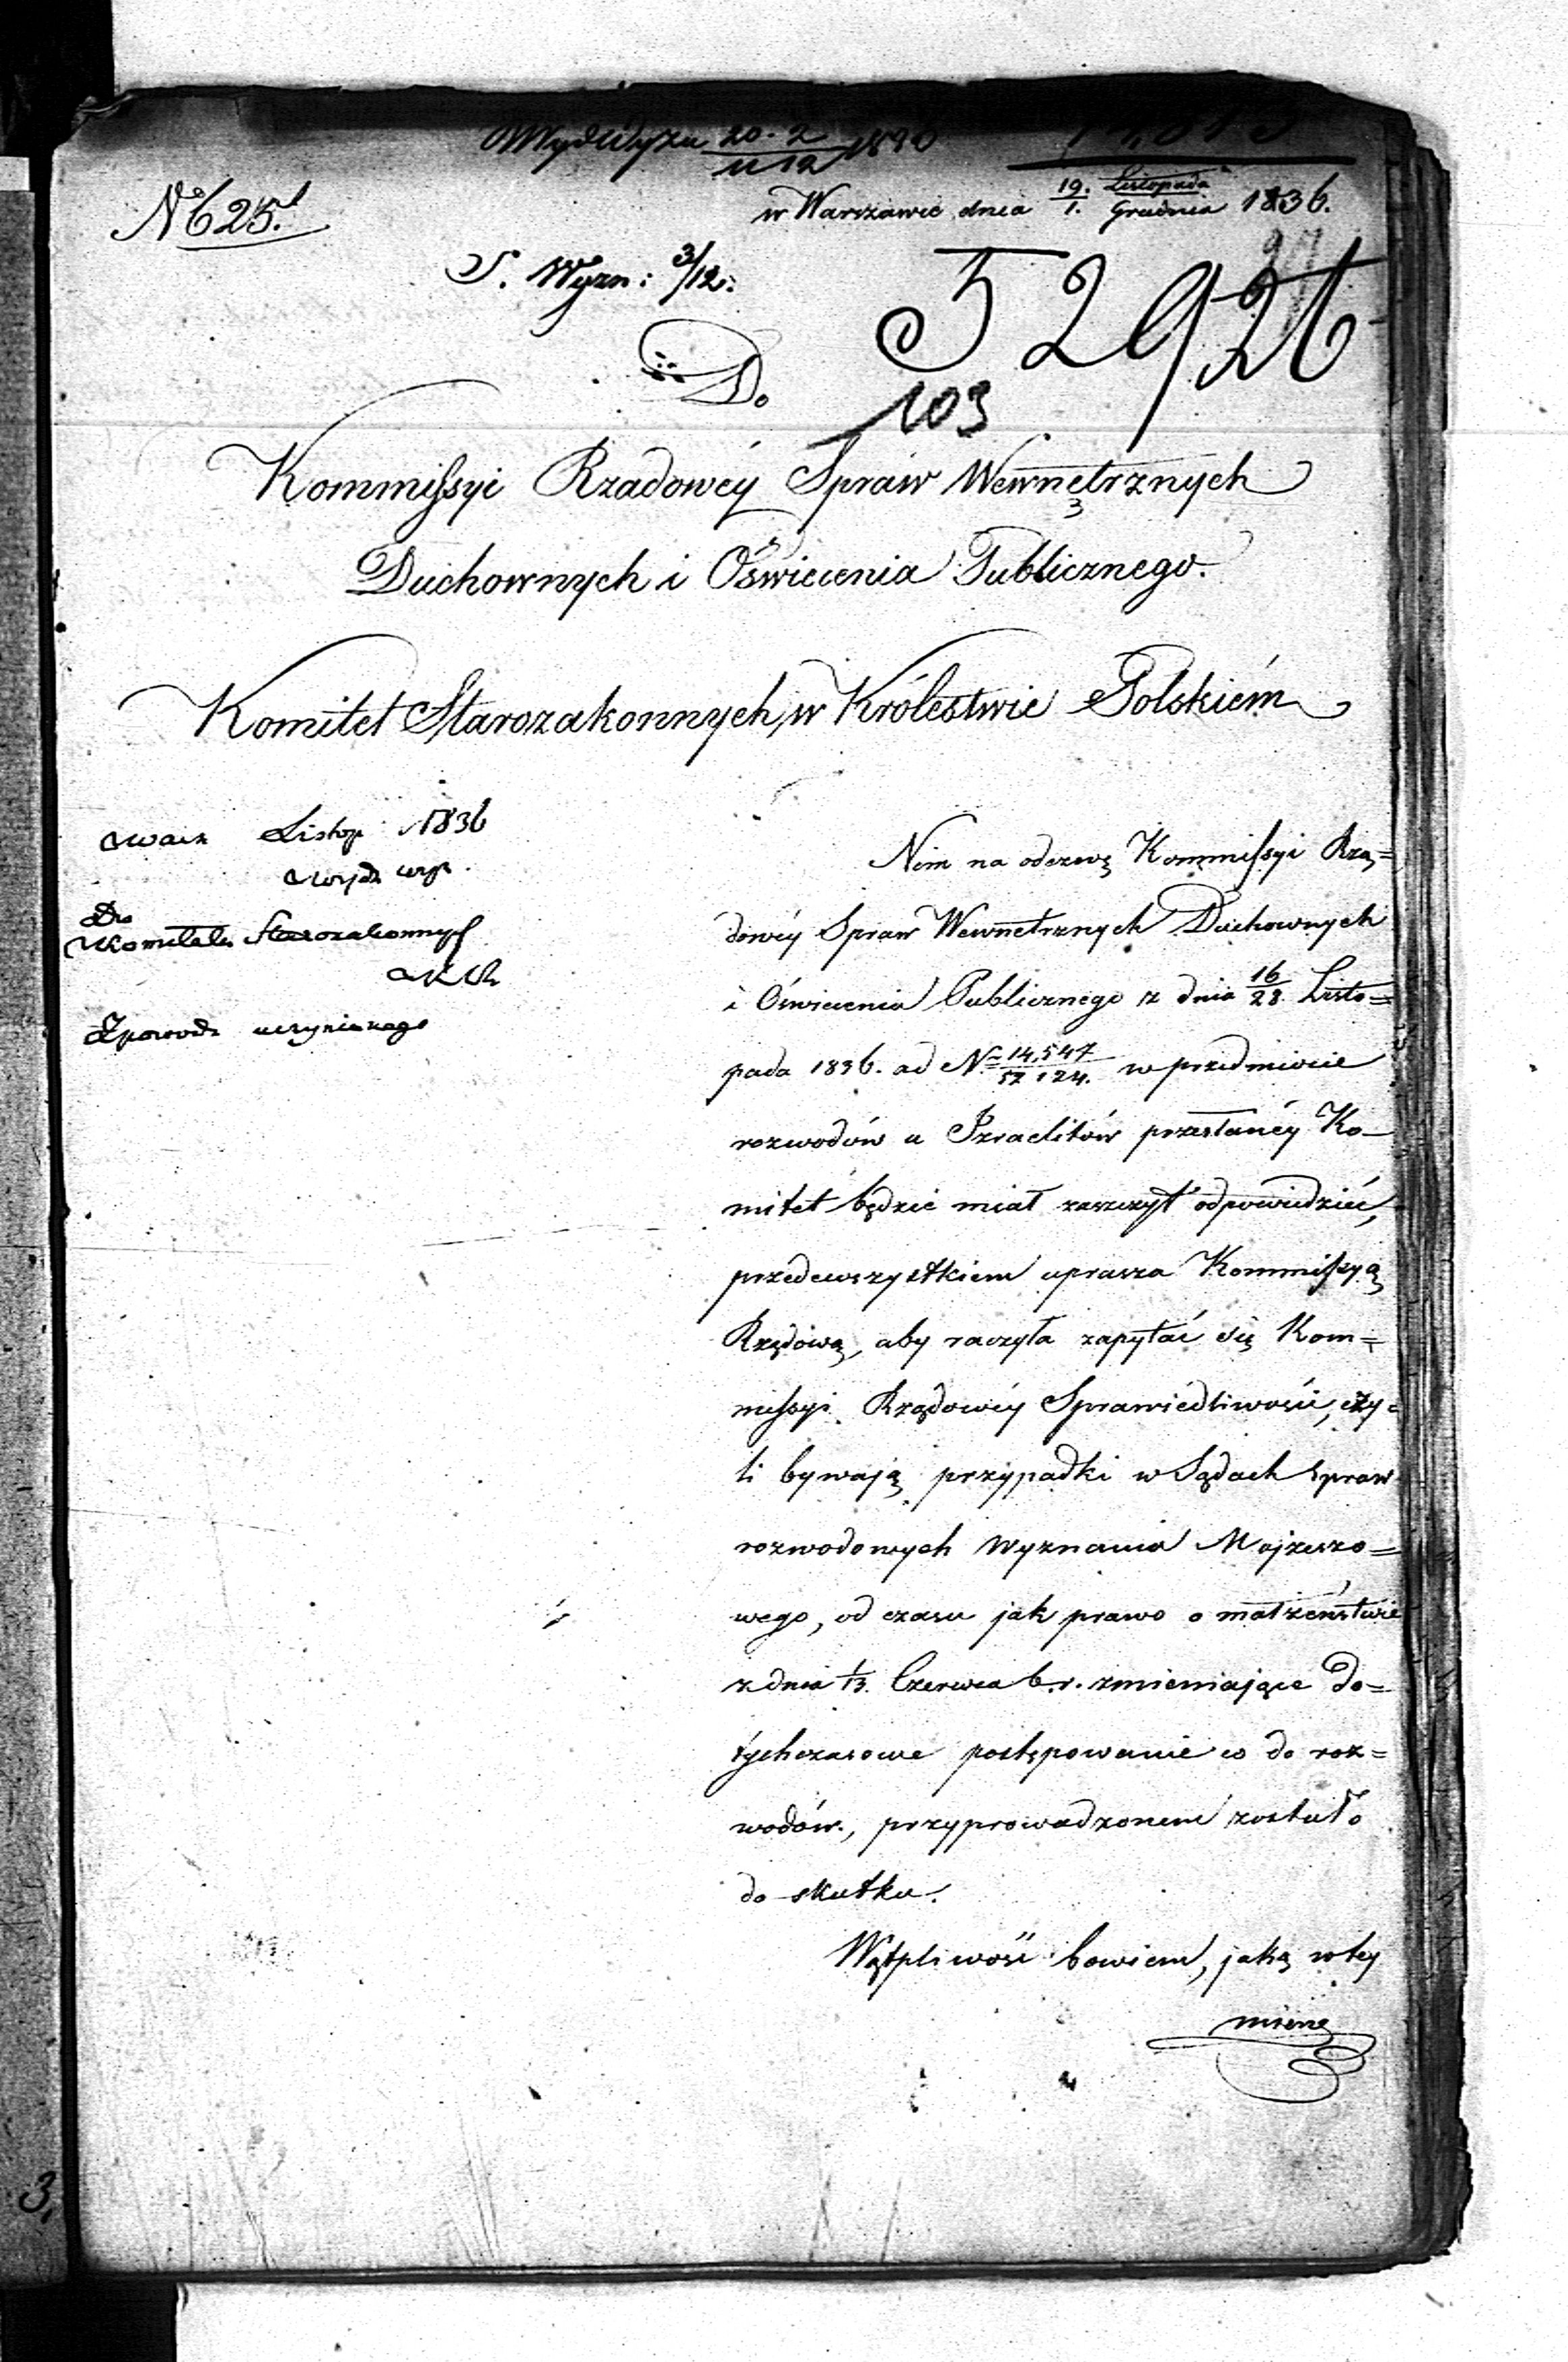 20. 2 / 11 12 1836
w Warszawie dnia 19. Listopada / 1. Grudnia 1836.
No 625.
S. Wyzn: 3/12.
52926
103
Do
Kommissyi Rządowéy Spraw Wewnętrznych
Duchownych i Oświecenia Publicznego.
Komitet Starozakonnych w Królestwie Polskiém
Listop 1836
Do
Komitetu Starozakonnych
Z powodu uczynionego
Nim na odezwę Kommissyi Rzą=
dowéy Spraw Wewnętrznych Duchownych
i Oświecenia Publicznego z dnia 16/28. Listo=
pada 1836. ad No 14,547/52124. w przedmiocie
rozwodów u Izraelitów przesłanéy Ko-
mitet będzie miał zaszczyt odpowiedzieć,
przedewszystkiem uprasza Kommissyą
Rządową, aby raczyła zapytać się Kom=
missyi Rządowéy Sprawiedliwości, czy=
li bywają przypadki w Sądach spraw
rozwodowych Wyznania Mojżeszo=
wego, od czasu jak prawo o małżeństwie
z dnia 1/13. Czerwca b.r. zmieniające do=
tychczasowe postępowanie co do roz=
wodów, przyprowadzonem zostało
do skutku.
Wątpliwość bowiem, jaką w tey
mierze
3,